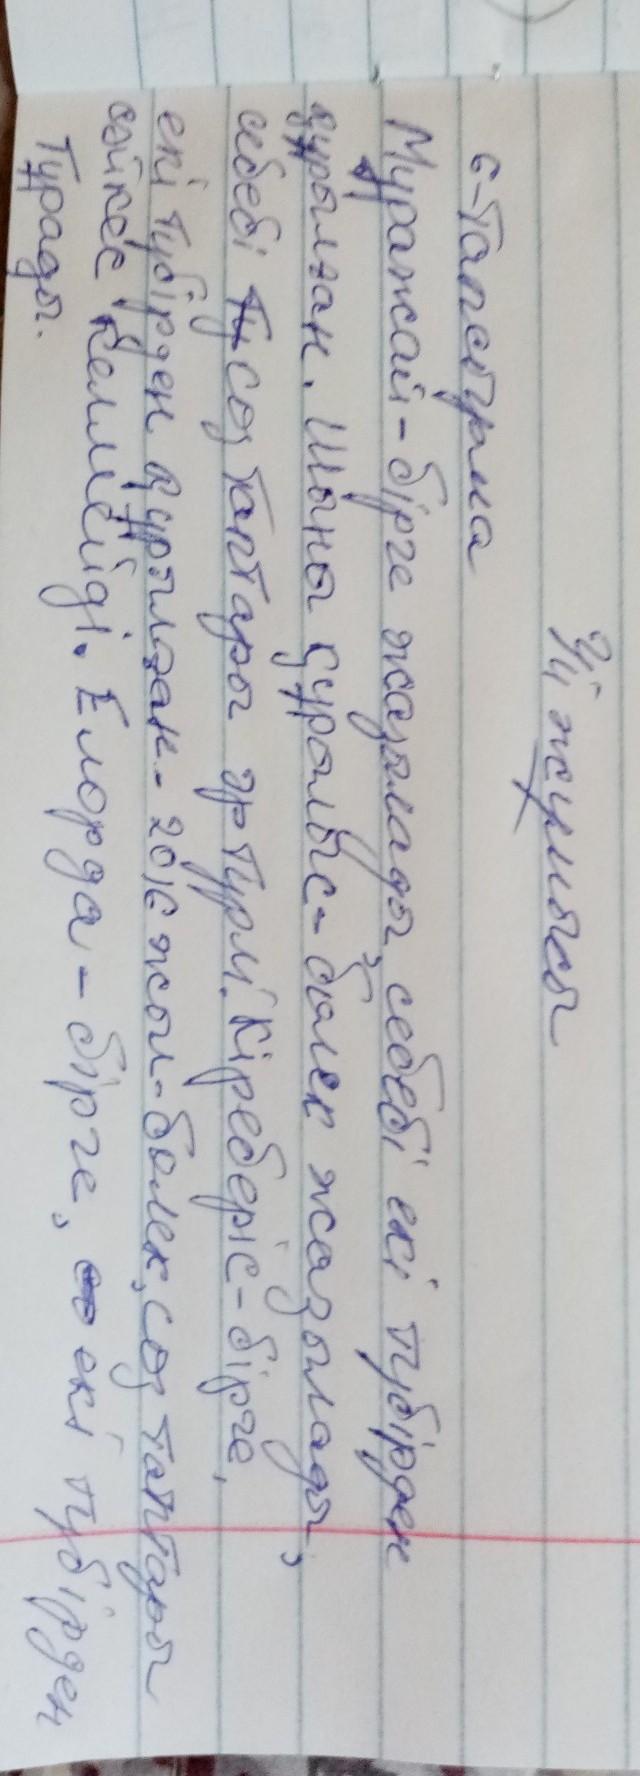 Үй жұмысы
6-тапсырма
Мұражай-бірге жазылады, себебі екі түбірден
құрылған. Шыны құрылыс-бөлек жазылады,
себебі сөз таптары әртүрлі. Кіреберіс-бірге,
екі түбірден құрылған. 2016 жыл-бөлек, сөз таптары
сәйкес келмейді. Елорда-бірге, екі түбірден
тұрады.